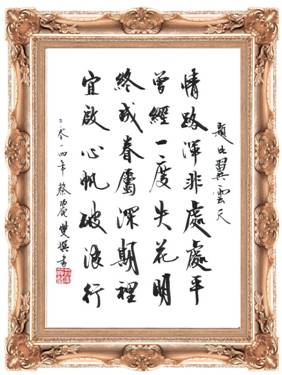 題比翼雲天
情路渾非處處平
曾經一度失花明
終成眷屬深期裡
宜啟心帆破浪行
二零一四年 蔡麗雙撰書